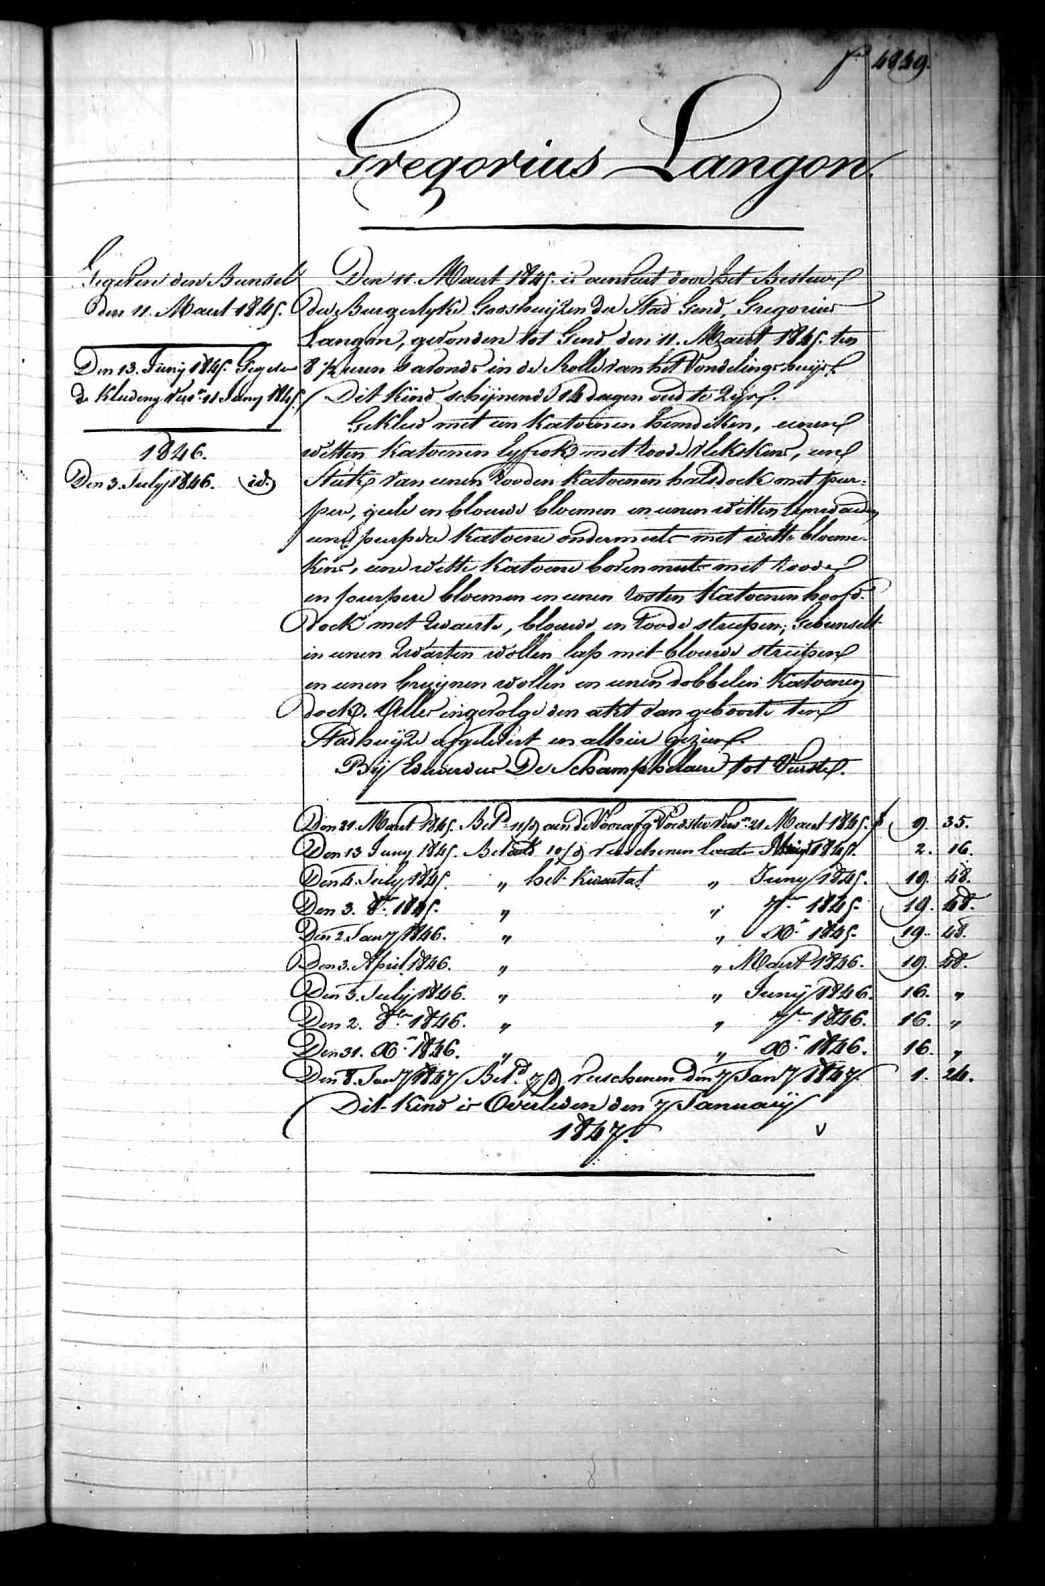 f° 4849.
Gregorius Langon.
Gegeven den Bunsel
den 11. Maert 1845.
Den 13. Juny 1845. Gegeven
de Kledeng vers.n 11 Juny 1845.
1846.
Den 3. July 1846. id.
Den 11. Maert 1845. is aenveert door het Bestuer
der Burgerlyke Godshuijzen der Stad Gend, Gregorius
Langon, gevonden tot Gend den 11. Maert 1845. ten
8 ½ uren savonds in de Rolle van het Vondelingshuijs.
Dit Kind schijnende 14 dagen oud te Zijn.
Gekleed met een katoenen hemdeken, eenen
witten katoenen lyfrok met roode vlekskens, een
stuk van eenen rooden katoenen halsdoek met pur-
per, geele en blouwe bloemen en eenen witten lynwaeden,
eene purpere katoene ondermuts met witte bloeme-
kens, eene witte katoene bovenmuts met roode
en purpere bloemen en eenen rosten katoenen hoofd-
doek met zwarte, blouwe en roode streepen; Gebunselt
in eenen zwarten wollen lap met blouwe streepen
en eenen bruijnen wollen en eenen dobbelen katoenen
doek. Alles ingevolge den akt van geboorte ten
Stadhuijze afgelevert en alhier gezien.
Bij Eduardus De Schamphelaere tot Vurste.
Den 21. Maert 1845. Bet.d 11/9 aen de Voorafg. Voedster vers.n 21 Maert 1845. f 9. 35.
Den 13 Juny 1845. Betaelt 10/9 verschenen laeste Maert 1845. 2. 16.
Den 4. July 1845. „ het kwartal „ Juny 1845. 19. 48.
Den 3. 8.er 1845. „ „ 7.er 1845. 19. 48.
Den 2. Jan.y 1846. „ „ X.r 1845. 19. 48.
Den 3. April 1846. „ „ Maert 1846. 19. 48.
Den 3. July 1846. „ „ Juny 1846. 16. „
Den 2. 8.er 1846. „ „ 7.er 1846. 16. „
Den 31. X.r 1846. „ „ X.r 1846. 16. „
Den 8. Jan.y 1847 Bet.d 7/9 verschenen den 7 Jan.y 1847. 1. 24.
Dit Kind is Overleden den 7 Januarij
1847. v